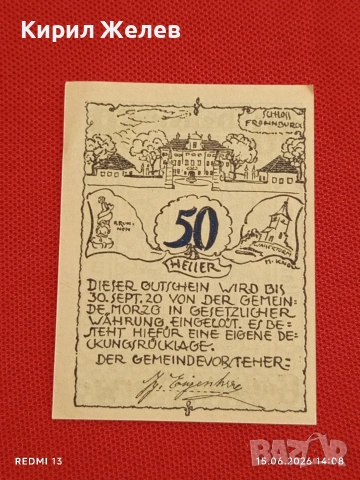 Кирил Желев
SCHLOSS
FRONNBURG
BRUN-
NEN
50
HELLER
WASSERTURM
DIESER GUTSCHEIN WIRD BIS
30. SEPT. 20 VON DER GEMEIN-
DE MORZG IN GESETZLICHER
WÄHRUNG EINGELÖST. ES BE-
STEHT HIEFÜR EINE EIGENE DE-
CKUNGSRÜCKLAGE.
DER GEMEINDEVORSTEHER:
REDMI 13
15.06.2026 14:08
BAZAR